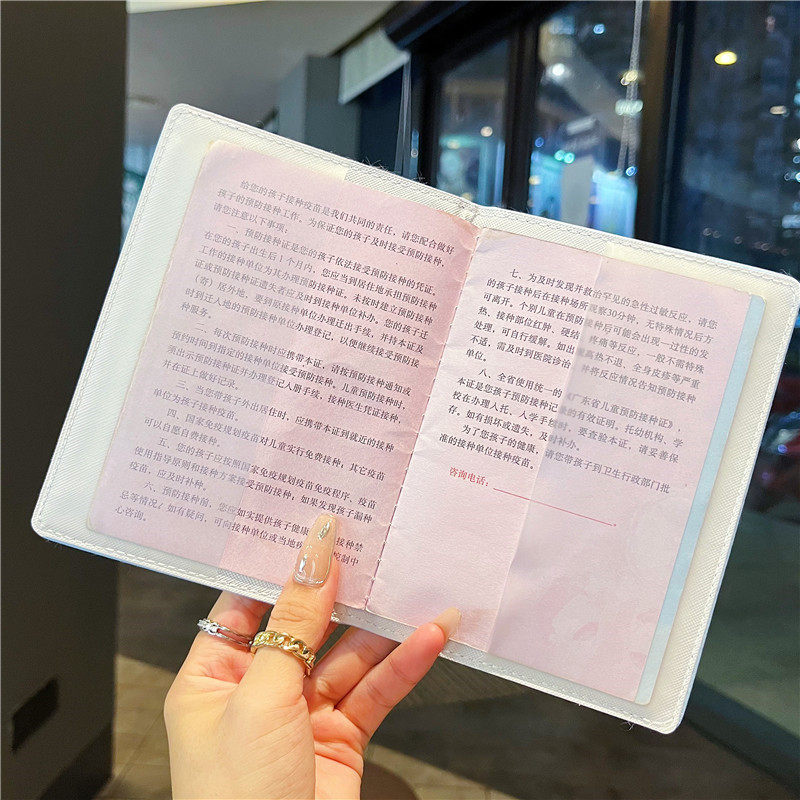 给您的孩子接种疫苗是我们共同的责任，请您配合做好
孩子的预防接种工作。为保证您的孩子及时接受预防接种，
请您注意以下事项：
一、预防接种证是您的孩子依法接受预防接种的凭证。
在您的孩子出生后1个月内，您应当到居住地承担预防接种
工作的接种单位为其办理预防接种证。未按时建立预防接种
证或预防接种证遗失者应及时到接种单位补办。您的孩子迁
（寄）居外地，要到原接种单位办理迁出手续，并持本证及
时到迁入地的预防接种单位办理登记，以便继续接受预防接
种服务。
二、每次预防接种时应携带本证，请按预防接种通知或
预约时间到指定的接种单位接受预防接种。儿童预防接种时，
须出示预防接种证并办理登记入册手续，接种医生凭证接种，
并在证上做好记录。
三、当您带孩子外出居住时，应携带本证到就近的接种
单位为孩子接种疫苗。
四、国家免疫规划疫苗对儿童实行免费接种；其它疫苗
可以自愿自费接种。
五、您的孩子应按照国家免疫规划疫苗免疫程序、疫苗
使用指导原则和接种方案接受预防接种；如果发现孩子漏种
疫苗，应及时补种。
六、预防接种前，您应如实提供孩子健康 接种禁
忌等情况！如有疑问，可向接种单位或当地疾 控制中
心咨询。
七、为及时发现并救治罕见的急性过敏反应，请您
的孩子接种后在接种场所观察30分钟，无特殊情况后方
可离开。个别儿童在预防接种后可能会出现一过性的发
热、接种部位红肿、硬结、疼痛等反应，一般不需特殊
处理，可自行缓解。如出 高热不退、全身皮疹等严重
不适，需及时到医院诊治 并将反应情况告知预防接种
单位。
八、全省使用统一的 《广东省儿童预防接种证》，
本证是您孩子预防接种记 的有效证明，托幼机构、学
校在办理入托、入学手续 要查验本证，请妥善保
存。如有损坏或遗失，及时补办。
为了您孩子的健康， 请您带孩子到卫生行政部门批
准的接种单位接种疫苗。
咨询电话：